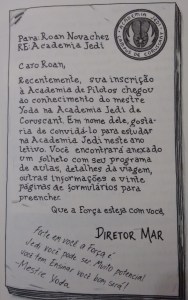 Para: Roan Novachez
RE: Academia Jedi
Caro Roan,
Recentemente, sua inscrição
à Academia de Pilotos chegou
ao conhecimento do mestre
Yoda na Academia Jedi de
Coruscant. Em nome dele, gosta-
ria de convidá-lo para estudar
na Academia Jedi neste ano
letivo. Você encontrará anexado
um folheto com seu programa
de aulas, detalhes da viagem,
outras informações e vinte
páginas de formulários para
preencher.
Que a Força esteja com você,
Diretor Mar
Forte em você a Força é.
Jedi você pode ser. Muito potencial
você tem. Ensinar você bom será!
-Mestre Yoda